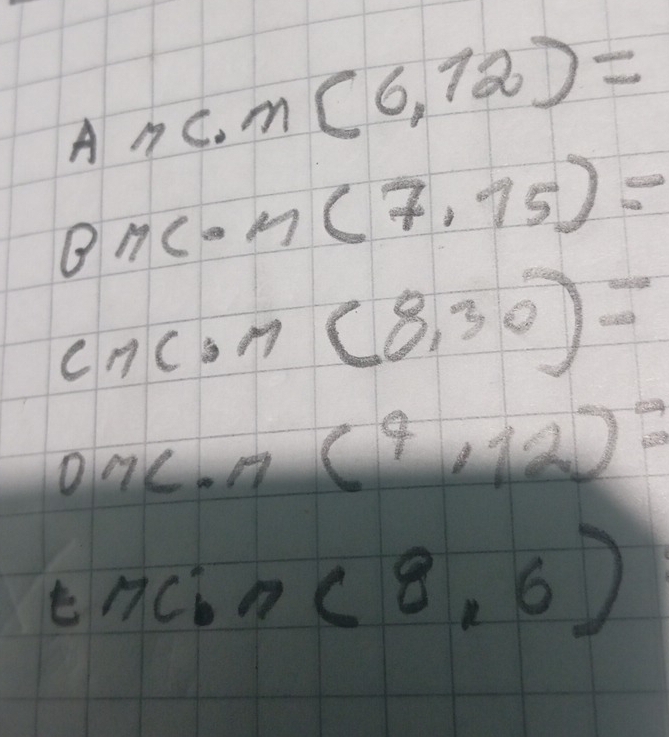 A mC.m (6,12) =
B mC.m (7,15) =
C mC.m (8,30) =
D mC.m ( ,12) =
E mC.m (8,6)